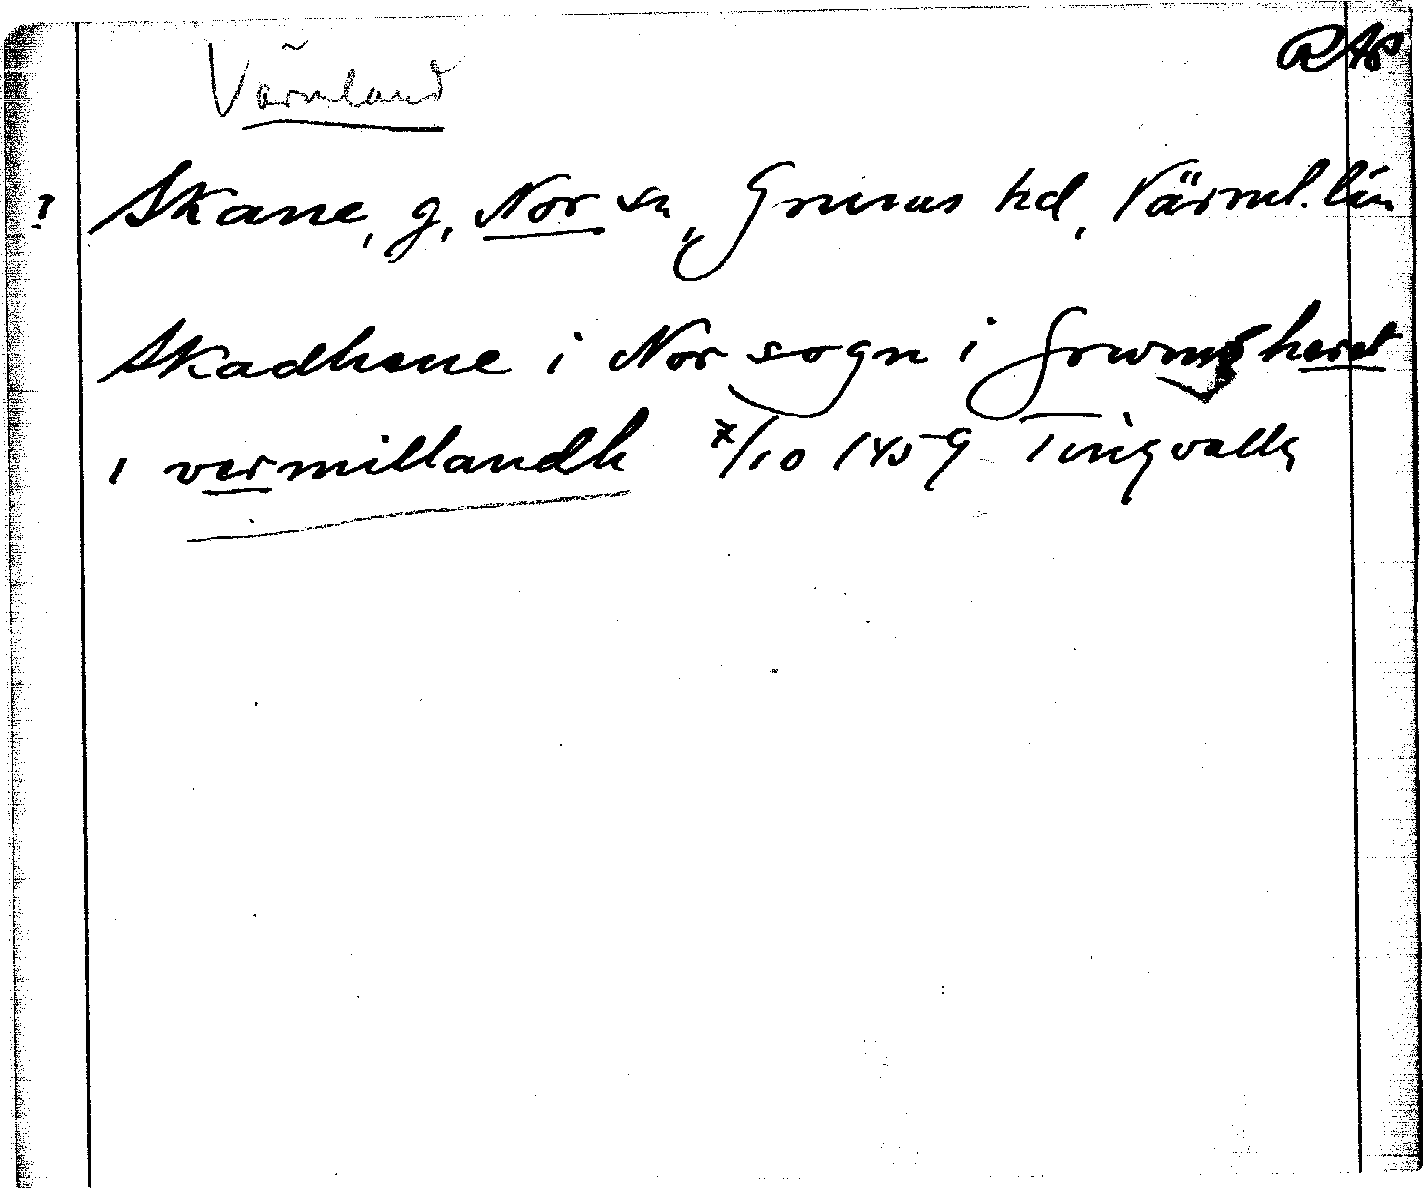 Värmland
RAp
? Skane, g, Nor sn, Grums hd, Värml. län
Skadhene i Nor sogn i Grwms heret
i vermillandh 7/10 1459 Tingvalla